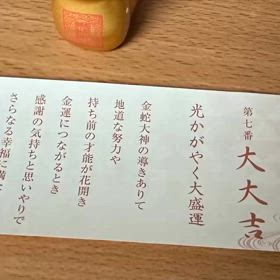 第七番
大大吉
光かがやく大盛運
金蛇大神の導きありて
地道な努力や
持ち前の才能が花開き
金運につながるとき
感謝の気持ちと思いやりで
さらなる幸福に満